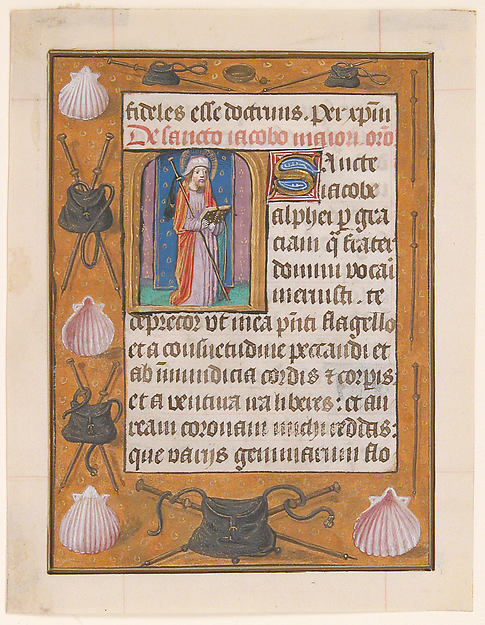 fideles esse doctrinis. Per xp̄m
De sancto iacobo maiori. oro
Sancte
iacobe
alphei p̱ gra
ciam q̄ frater
domini vocai
meruisti. te
deprecor vt mea pn̄ti flagello
et a consuetudine peccandi et
ab īmundicia cordis ⁊ corpis
et a ventura ira liberes: et au
ream coronam michi reddas:
que varijs gemmarum flo